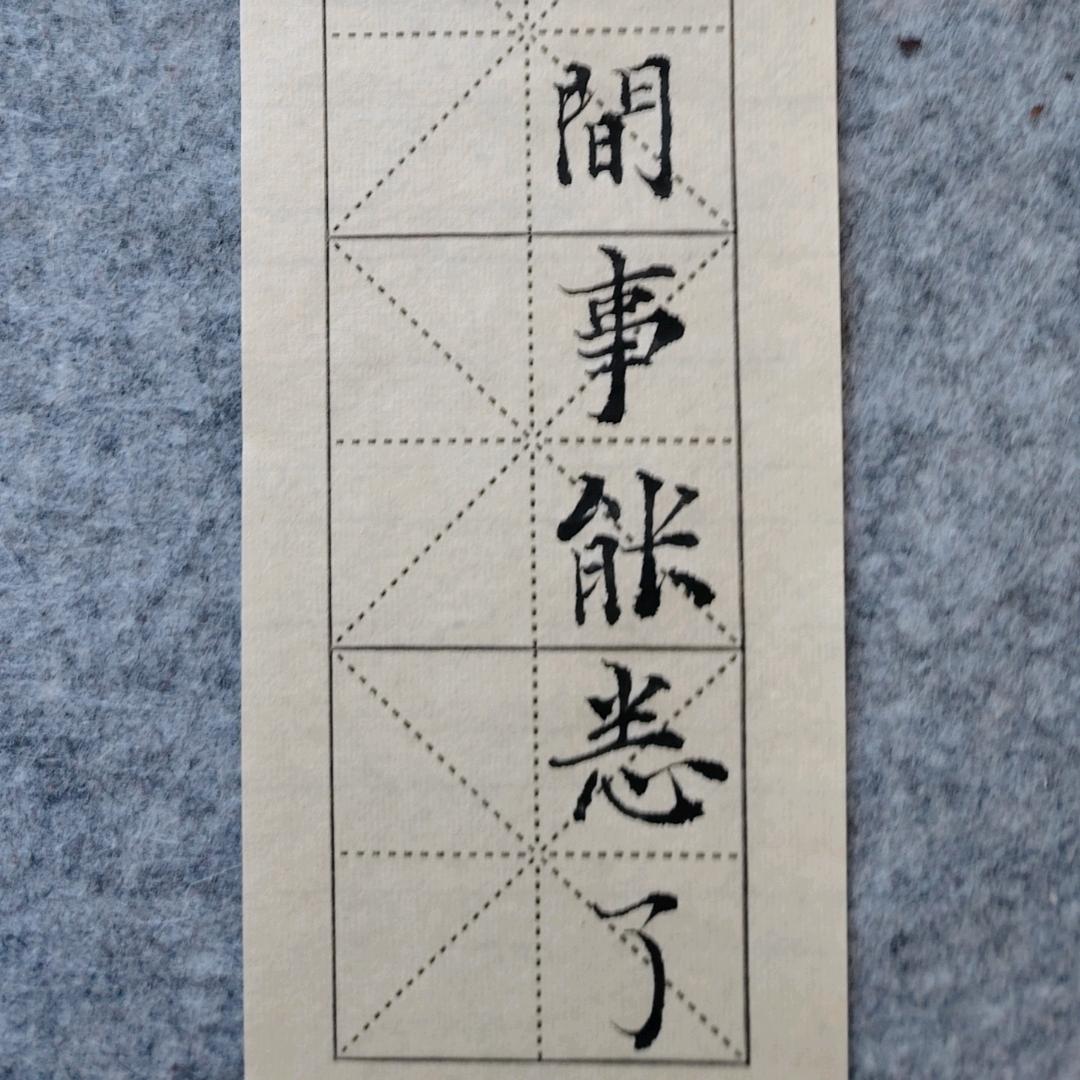 間事能悉了